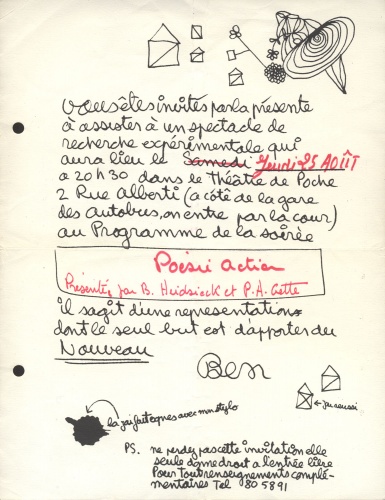 Vous êtes invités par la présente
à assister à un spectacle de
recherche expérimentale qui
aura lieu le Samedi Jeudi 25 AOÛT
a 20 h 30 dans le Théâtre de Poche
2 Rue Alberti (a côté de la gare
des Autobus, on entre par la cour)
au Programme de la soirée
Poésie action
Présentée par B. Heidsieck et P. A. Gette
il sagit d'une representation
dont le seul but est d'apporter du
Nouveau
Ben
← j'ai reussi
la j'ai fait avec mon stylo
PS. ne perdez pas cette invitation elle
seule donne droit a l'entrée libre
Pour tout renseignements complé-
mentaires Tel 80 58 91